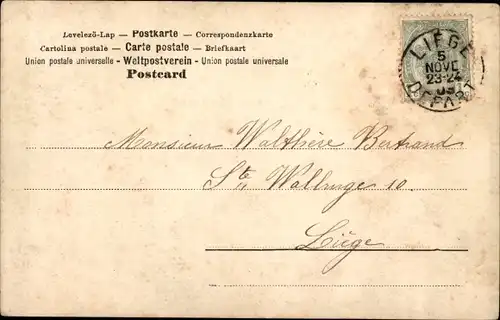 Levelező-Lap — Postkarte — Correspondenzkarte
Cartolina postale — Carte postale — Briefkaart
Union postale universelle — Weltpostverein — Union postale universale
Postcard
LIÉGE
5
NOVE
23-24
03
DEPART
Monsieur Walthère Bertrand
Ste Walburge 10.
Liége